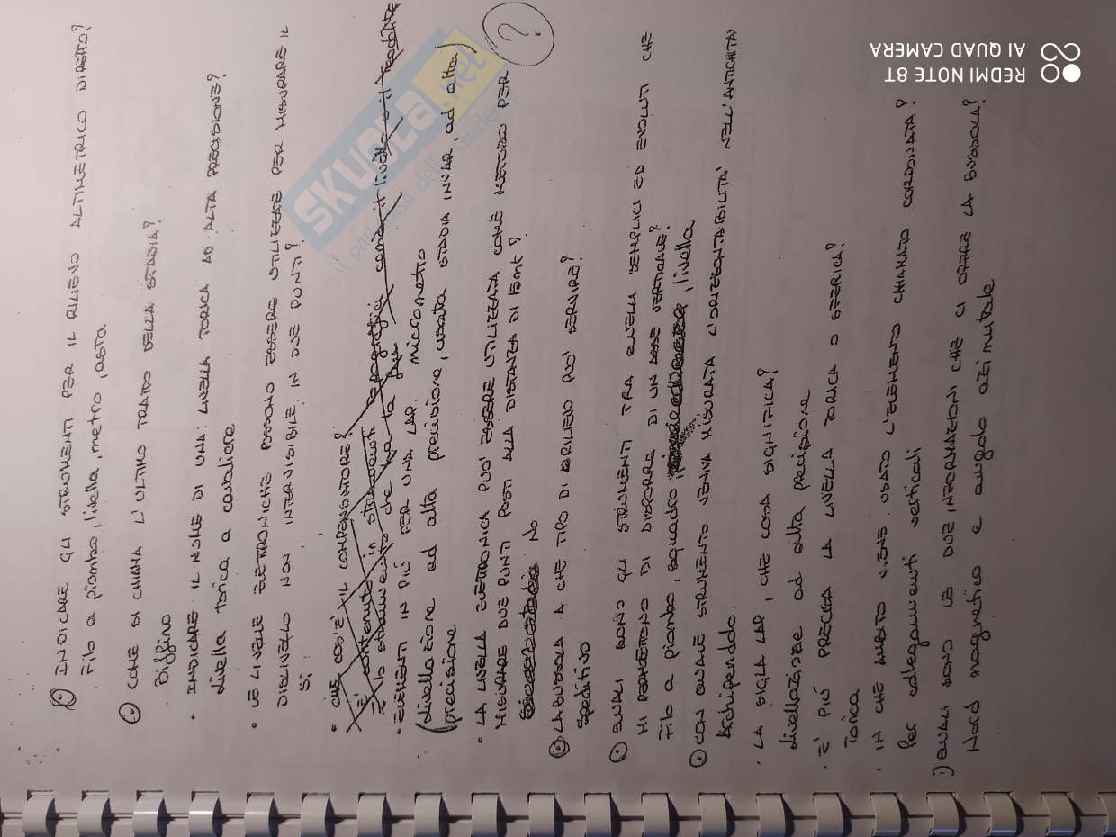 INDICARE GLI STRUMENTI PER IL RILIEVO ALTIMETRICO DIRETTO?
Filo a piombo, livella, metro, asta
COME SI CHIAMA L'ULTIMO TRATTO DELLA STADIA?
Biffino
INDICARE IL NOME DI UNA LIVELLA TORICA AD ALTA PRECISIONE?
livella torica a cavaliere
LE LIVELLE ELETTRONICHE POSSONO ESSERE UTILIZZATE PER MISURARE IL
DISLIVELLO NON INTERVISIBILE IN DUE PUNTI?
SI
CHE COS'È IL COMPENSATORE?
È contenuto in strumenti topografici come il livello e il teodolite
È lo strumento che ha la
ELEMENTI IN PIÙ PER UNA LAP micrometro
(livellazione ad alta precisione, usata stadia INVAR, ad alta)
precisione
LA LIVELLA ELETTRONICA PUÒ ESSERE UTILIZZATA COME METODO PER
MISURARE DUE PUNTI POSTI ALLA DISTANZA DI 150mt?
No
LA BUSSOLA A CHE TIPO DI RILIEVO PUÒ SERVIRE?
Speditivo
QUALI SONO GLI STRUMENTI TRA QUELLI SEMPLICI ED EVOLUTI CHE
MI PERMETTONO DI DISPORRE DI UN ASSE VERTICALE?
Filo a piombo, squadro, livella
CON QUALE STRUMENTO VENIVA MISURATA L'ORIZZONTABILITÀ NELL'ANTICHITÀ
Archipendolo
LA SIGLA LAP, CHE COSA SIGNIFICA?
livellazione ad alta precisione
È PIÙ PRECISA LA LIVELLA TORICA O SFERICA?
Torica
IN CHE AMBITO VIENE USATO L'ELEMENTO CHIAMATO COROONATA?
Per collegamenti verticali
QUALI SONO LE DUE INFORMAZIONI CHE CI OFFRE LA BUSSOLA?
Nord magnetico e angolo azimutale
?
SKUOLA.net
REDMI NOTE 8T
AI QUAD CAMERA